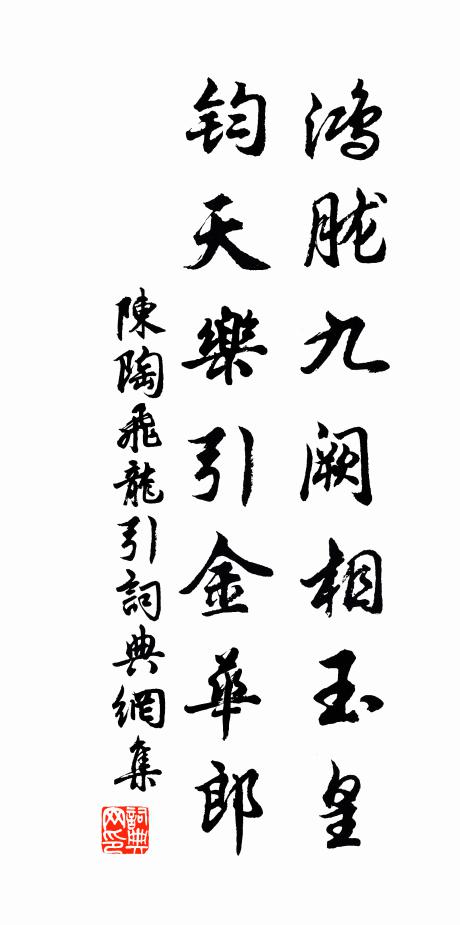 鸿胧九阙相玉皇
钧天樂引金華郎
陳陶飛龍引詞典網集
詞典网印